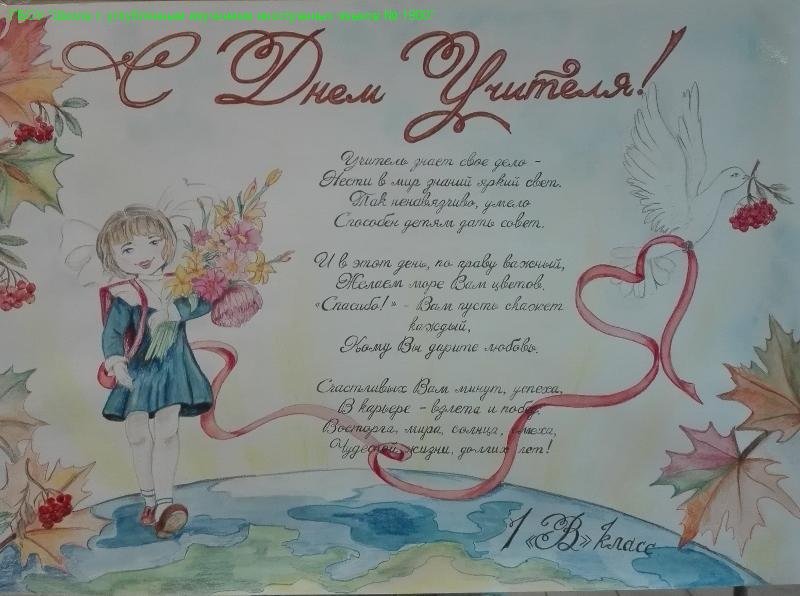 ГБОУ "Школа с углубленным изучением иностранных языков № 1900"
С Днем Учителя!
Учитель знает свое дело -
Нести в мир знаний яркий свет.
Так ненавязчиво, умело
Способен детям дать совет.
И в этот день, по праву важный,
Желаем море Вам цветов.
«Спасибо!» - Вам пусть скажет
каждый,
Кому Вы дарите любовь.
Счастливых Вам минут, успеха,
В карьере - взлета и побед.
Восторга, мира, солнца, смеха,
Чудесной жизни, долгих лет!
1 «В» класс